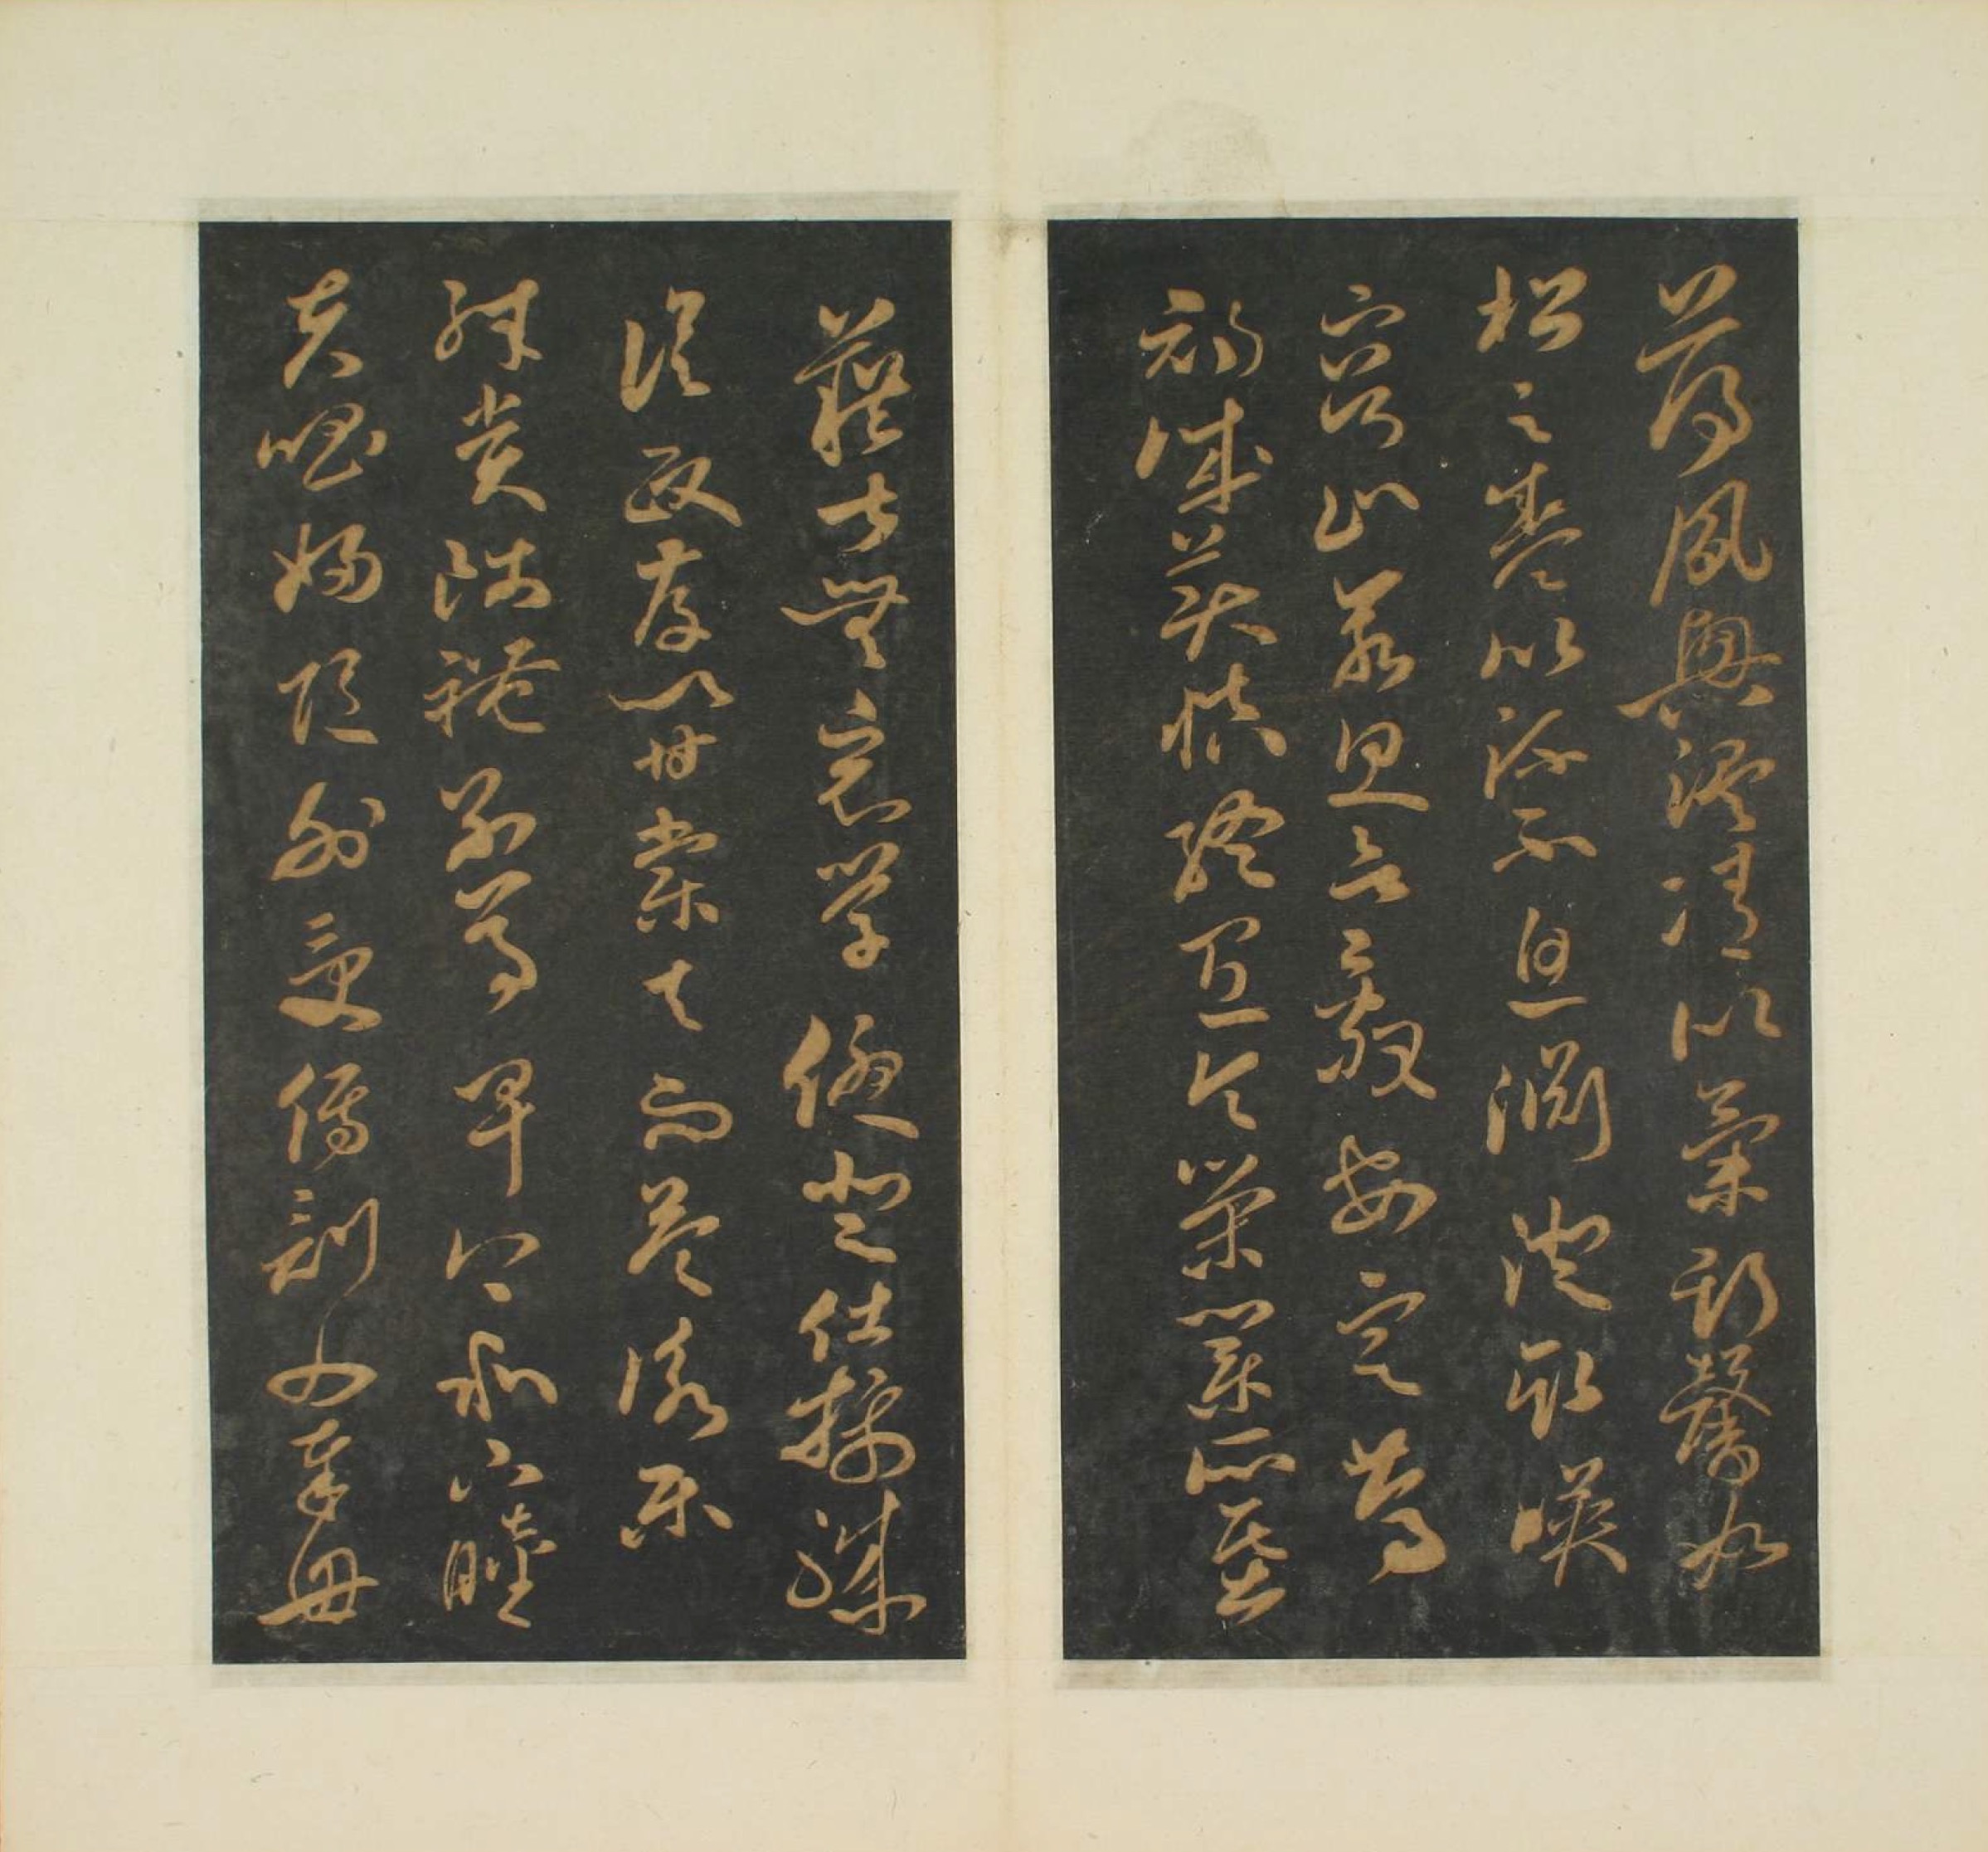 薄夙興溫凊似蘭斯馨如
松之盛川流不息淵澄取暎
容止若思言辭安定篤
初誠美慎終宜令榮業所基
籍甚無竟學優登仕攝職
從政存以甘棠去而益詠樂
殊貴賤禮別尊卑上和下睦
夫唱婦隨外受傅訓入奉母